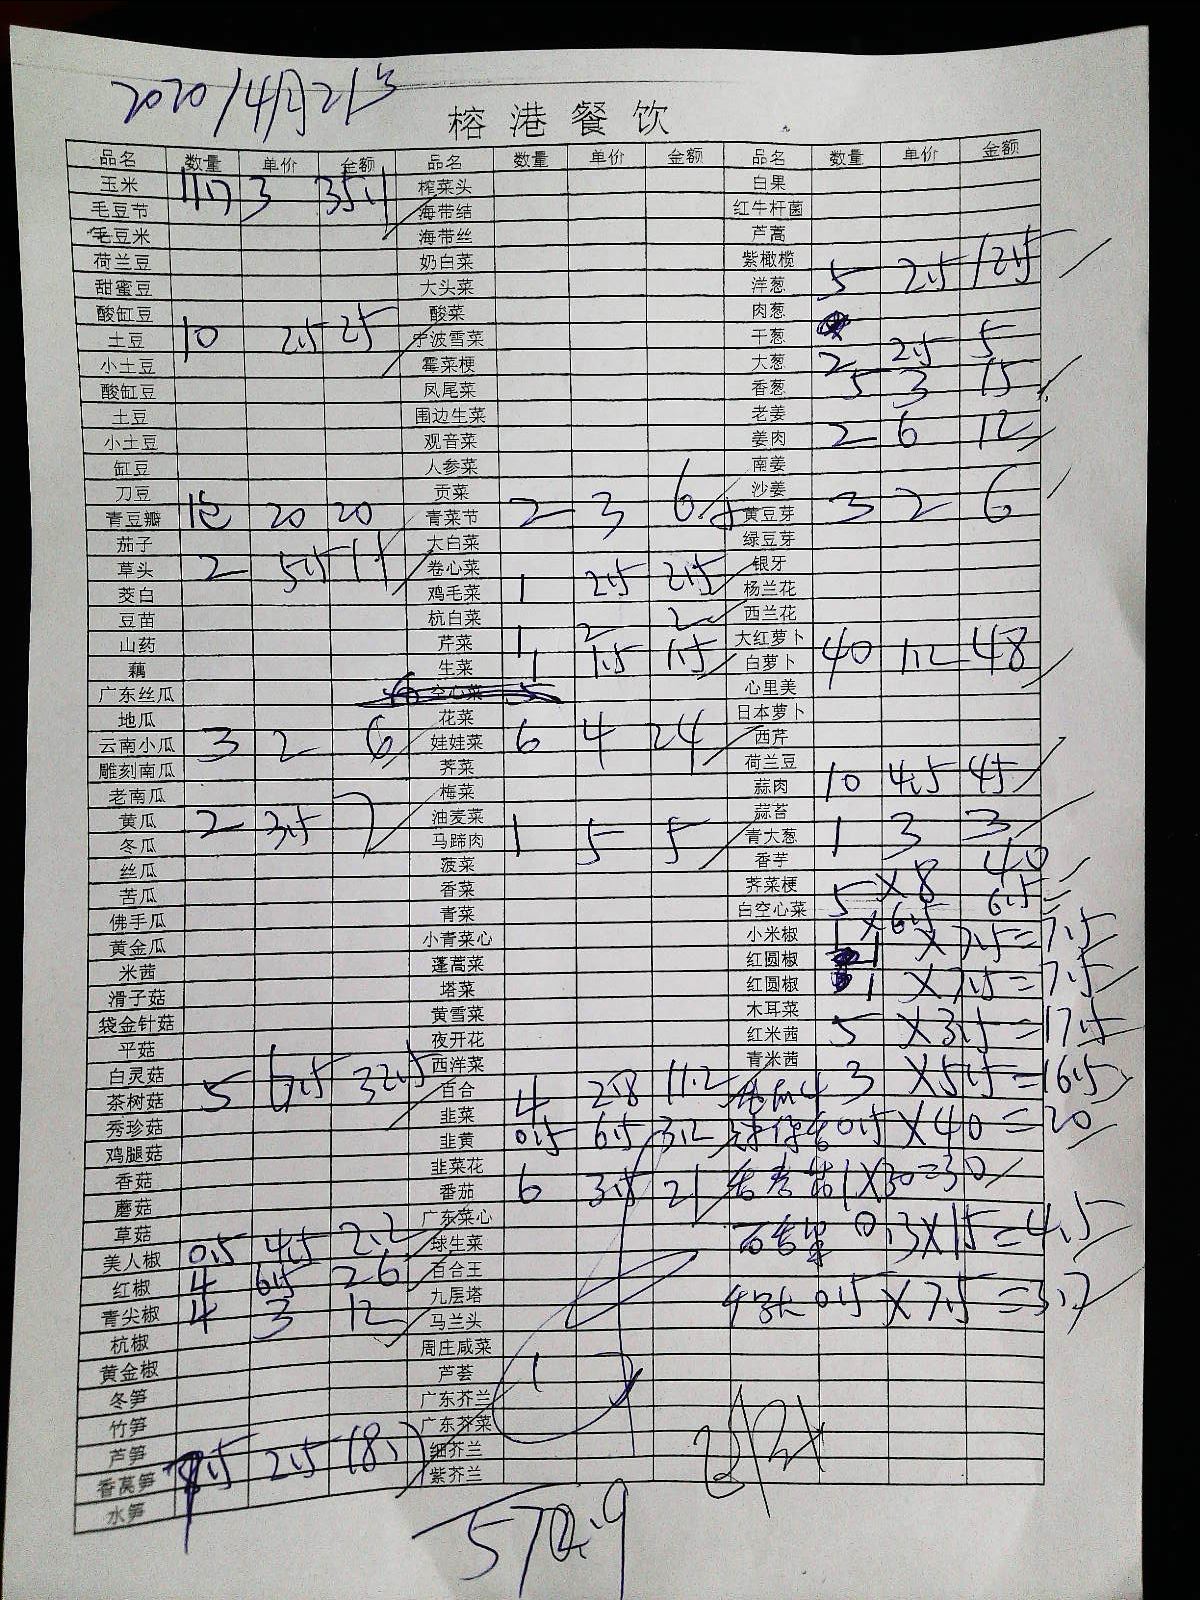 2020/4月21号
榕港餐饮
品名 数量 单价 金额 品名 数量 单价 金额 品名 数量 单价 金额
玉米 11.7 3 35.1 榨菜头 白果
毛豆节 海带结 红牛杆菌
毛豆米 海带丝 芦蒿
荷兰豆 奶白菜 紫橄榄
甜蜜豆 大头菜 洋葱 5 2.5 12.5
酸缸豆 酸菜 肉葱
土豆 10 2.5 25 宁波雪菜 干葱
小土豆 霉菜梗 大葱 2 2.5 5
酸缸豆 凤尾菜 香葱 5 3 15
土豆 围边生菜 老姜
小土豆 观音菜 姜肉 2 6 12
缸豆 人参菜 南姜
刀豆 贡菜 沙姜
青豆瓣 1包 20 20 青菜节 2 3 6 黄豆芽 3 2 6
茄子 大白菜 绿豆芽
草头 2 5.5 11 卷心菜 银牙
茭白 鸡毛菜 1 2.5 2.5 杨兰花
豆苗 杭白菜 西兰花
山药 芹菜 1 2 2 大红萝卜
藕 生菜 1 1.5 1.5 白萝卜 40 1.2 48
广东丝瓜 空心菜 心里美
地瓜 花菜 日本萝卜
云南小瓜 3 2 6 娃娃菜 6 4 24 西芹
雕刻南瓜 荠菜 荷兰豆
老南瓜 梅菜 蒜肉 10 4.5 45
黄瓜 2 3.5 7 油麦菜 蒜苔
冬瓜 马蹄肉 1 5 5 青大葱 1 3 3
丝瓜 菠菜 香芋
苦瓜 香菜 荠菜梗 5 X8 40
佛手瓜 青菜 白空心菜 1 X6.5 6.5
黄金瓜 小青菜心 小米椒 1 X7.5=7.5
米茜 蓬蒿菜 红圆椒
滑子菇 塔菜 红圆椒 1 X7.5=7.5
袋金针菇 黄雪菜 木耳菜
平菇 夜开花 红米茜 5 X3.5=17.5
白灵菇 5 6.5 32.5 西洋菜 青米茜
茶树菇 百合 4 2.8 11.2 3 X5.5=16.5
秀珍菇 韭菜
鸡腿菇 韭黄 0.5 6.5 3.2 0.5 X40=20
香菇 韭菜花
蘑菇 番茄 6 3.5 21 1X30=30
草菇 广东菜心
美人椒 0.5 4.5 2.2 球生菜 0.3X15=4.5
红椒 4 6.5 26 百合王
青尖椒 4 3 12 九层塔 0.5X7.5=3.7
杭椒 马兰头
黄金椒 周庄咸菜
冬笋 芦荟
竹笋 广东芥兰
芦笋 广东芥菜
香莴笋 2.5 细芥兰
水笋 紫芥兰